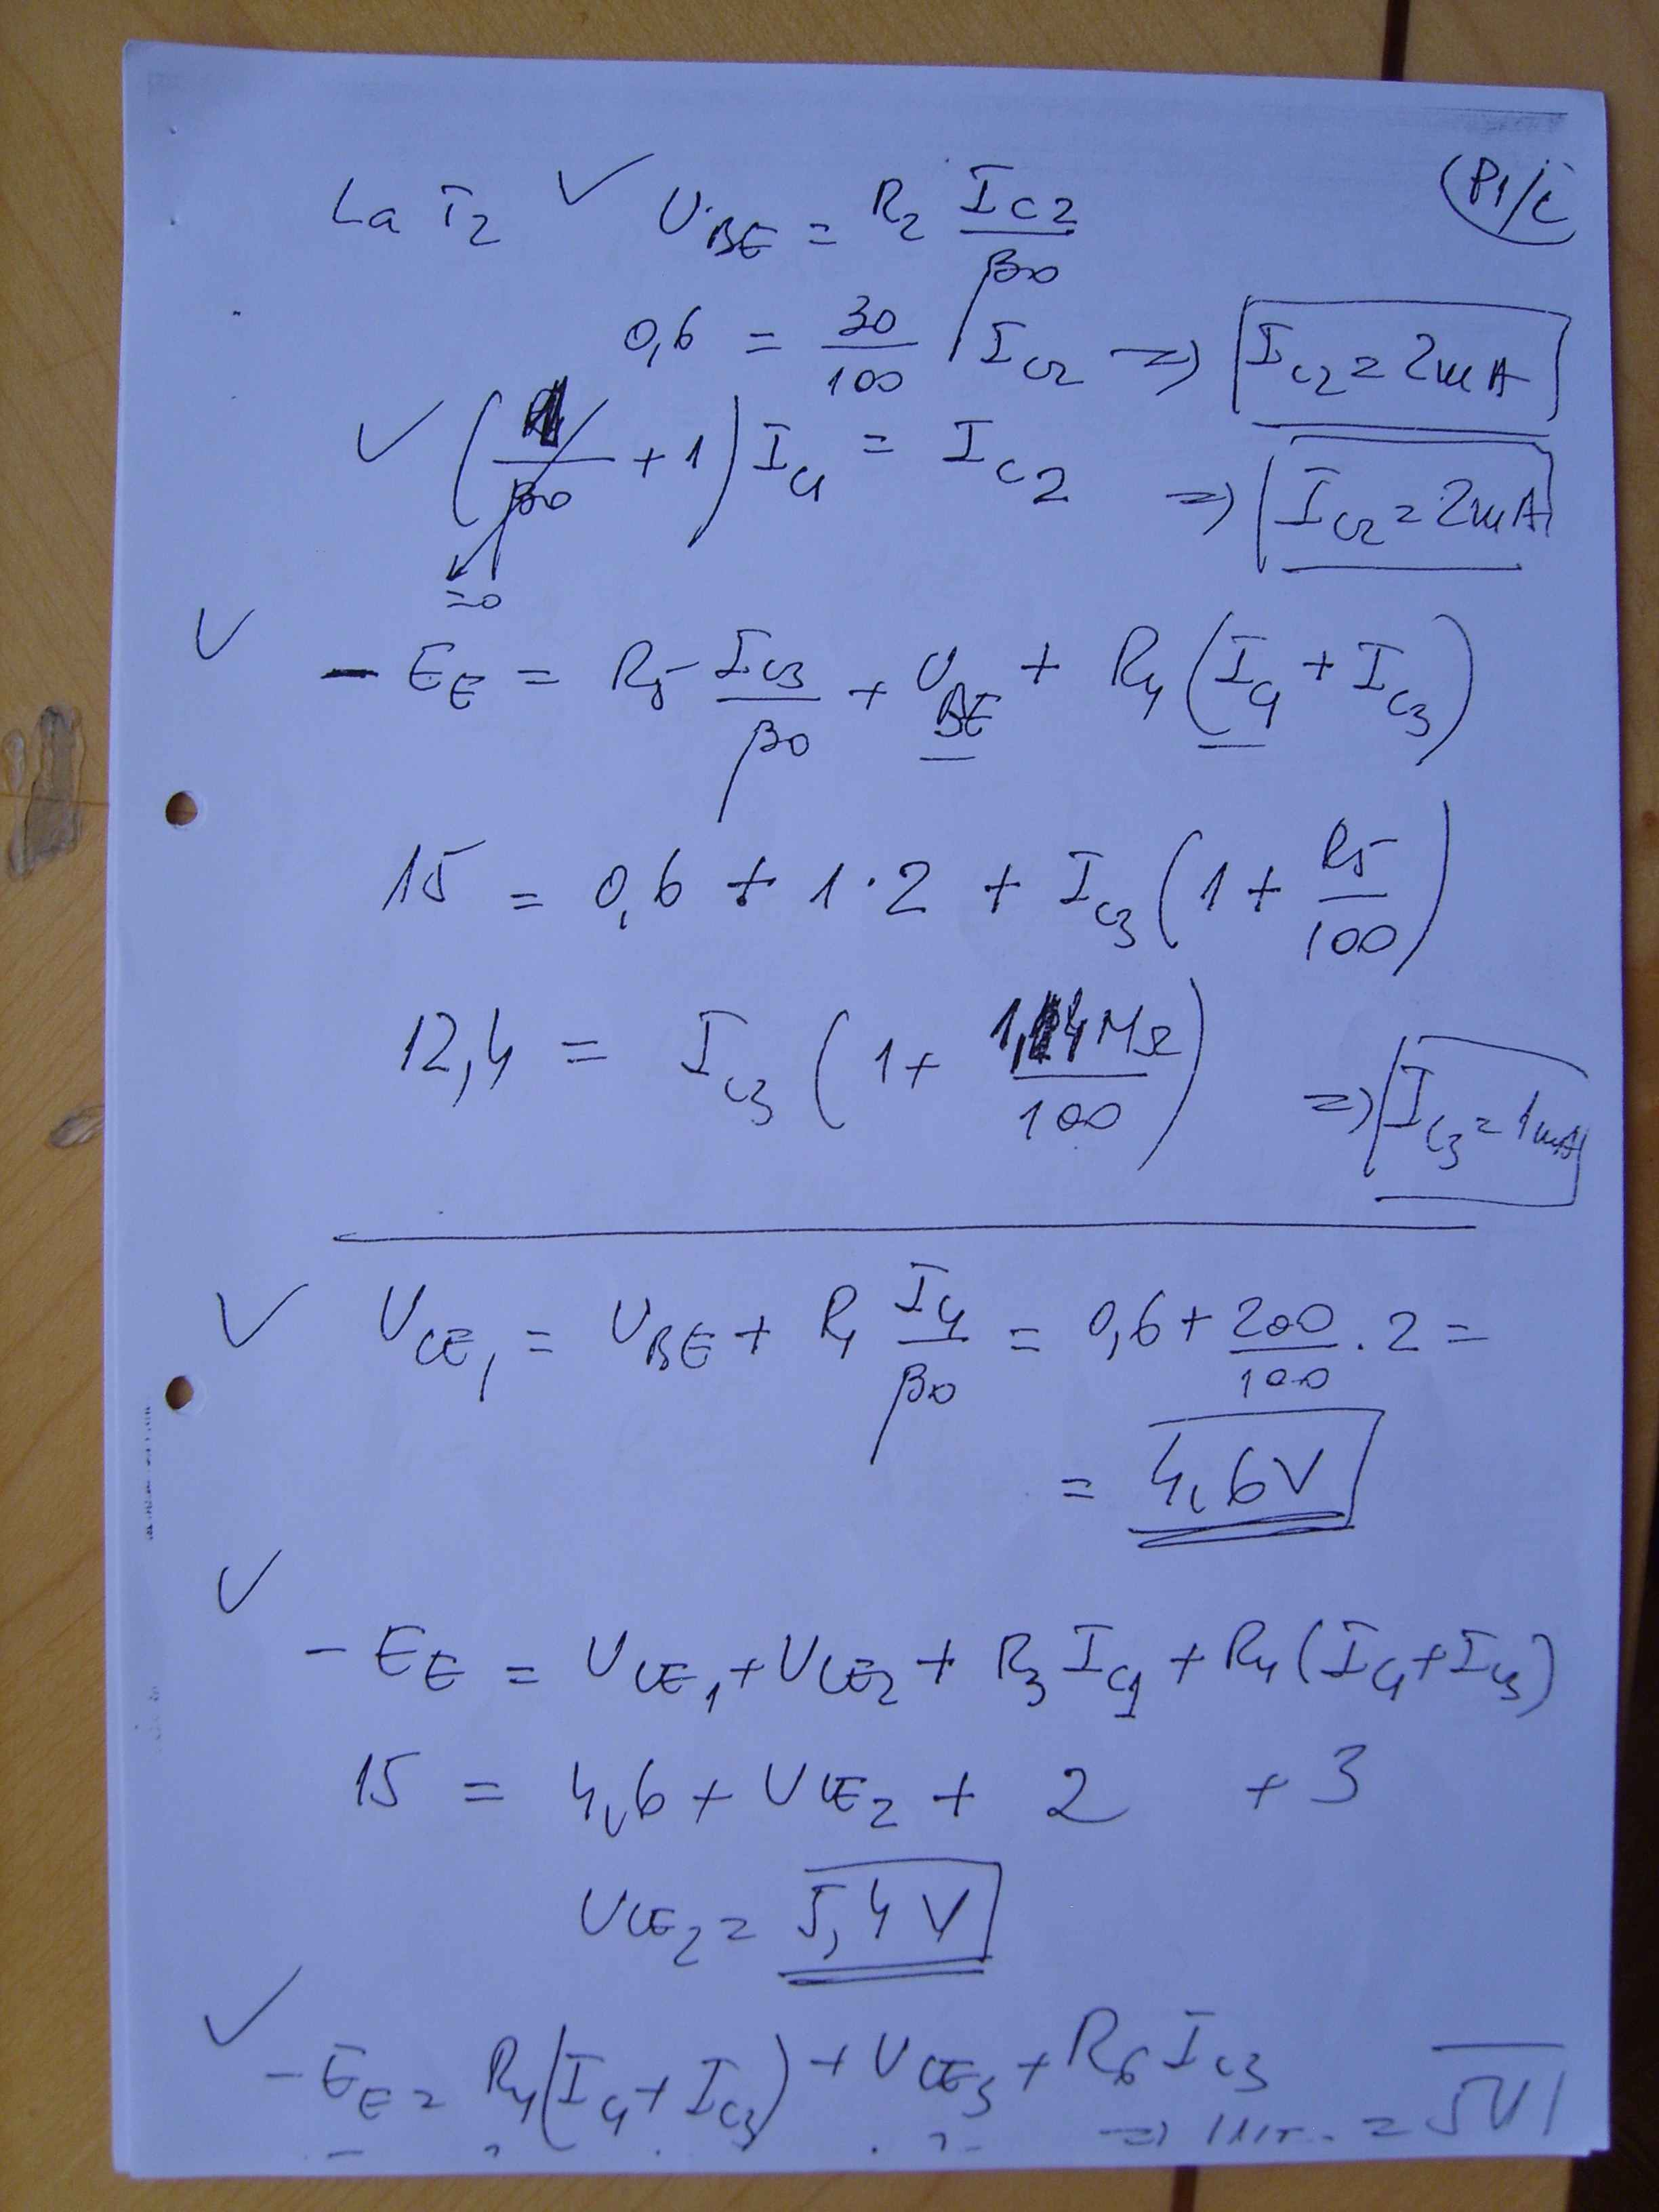 P1/i
La T2 ✓ U_BE = R2 I_C2/β0
0,6 = 30/100 I_C2 => I_C2 = 2mA
✓ (/β0 + 1) I_C1 = I_C2 => I_C2 = 2mA
=0
✓ - E_E = R5 I_C3/β0 + U_BE + R4 (I_C1 + I_C3)
15 = 0,6 + 1·2 + I_C3 (1 + R5/100)
12,4 = I_C3 (1 + 1,14MΩ/100) => I_C3 = 1mA
✓ U_CE1 = U_BE + R1 I_C1/β0 = 0,6 + 200/100 . 2 =
= 4,6V
✓
- E_E = U_CE1 + U_CE2 + R3 I_C1 + R4 (I_C1 + I_C3)
15 = 4,6 + U_CE2 + 2 + 3
U_CE2 = 5,4 V
✓ - E_E = R4 (I_C1 + I_C3) + U_CE3 + R6 I_C3
=> = 5V